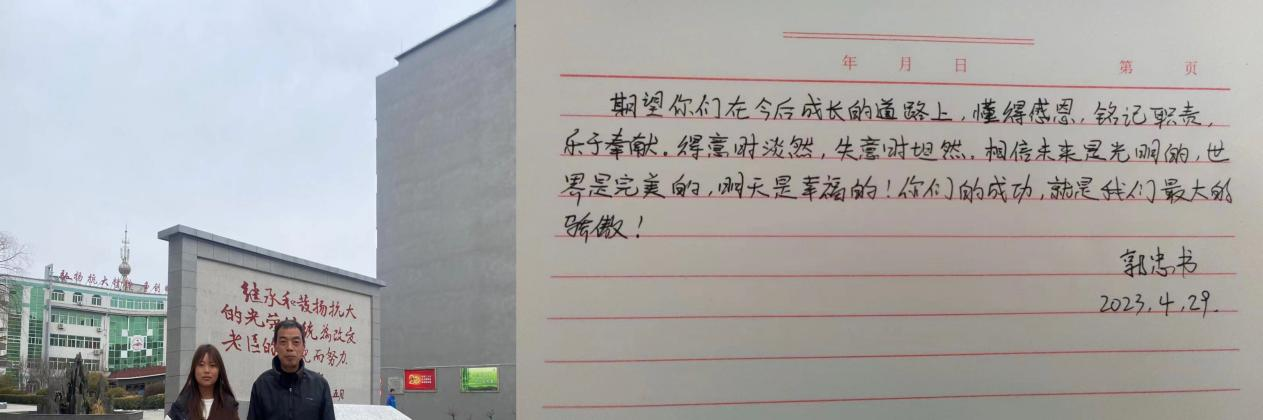 弘扬抗大精神
继承和发扬抗大
的光荣传统为改变
老区的面而努力
年 月 日 第 页
期望你们在今后成长的道路上，懂得感恩，铭记职责，
乐于奉献。得意时淡然，失意时坦然。相信未来是光明的，世
界是完美的，明天是幸福的！你们的成功，就是我们最大的
骄傲！
郭忠书
2023.4.29.